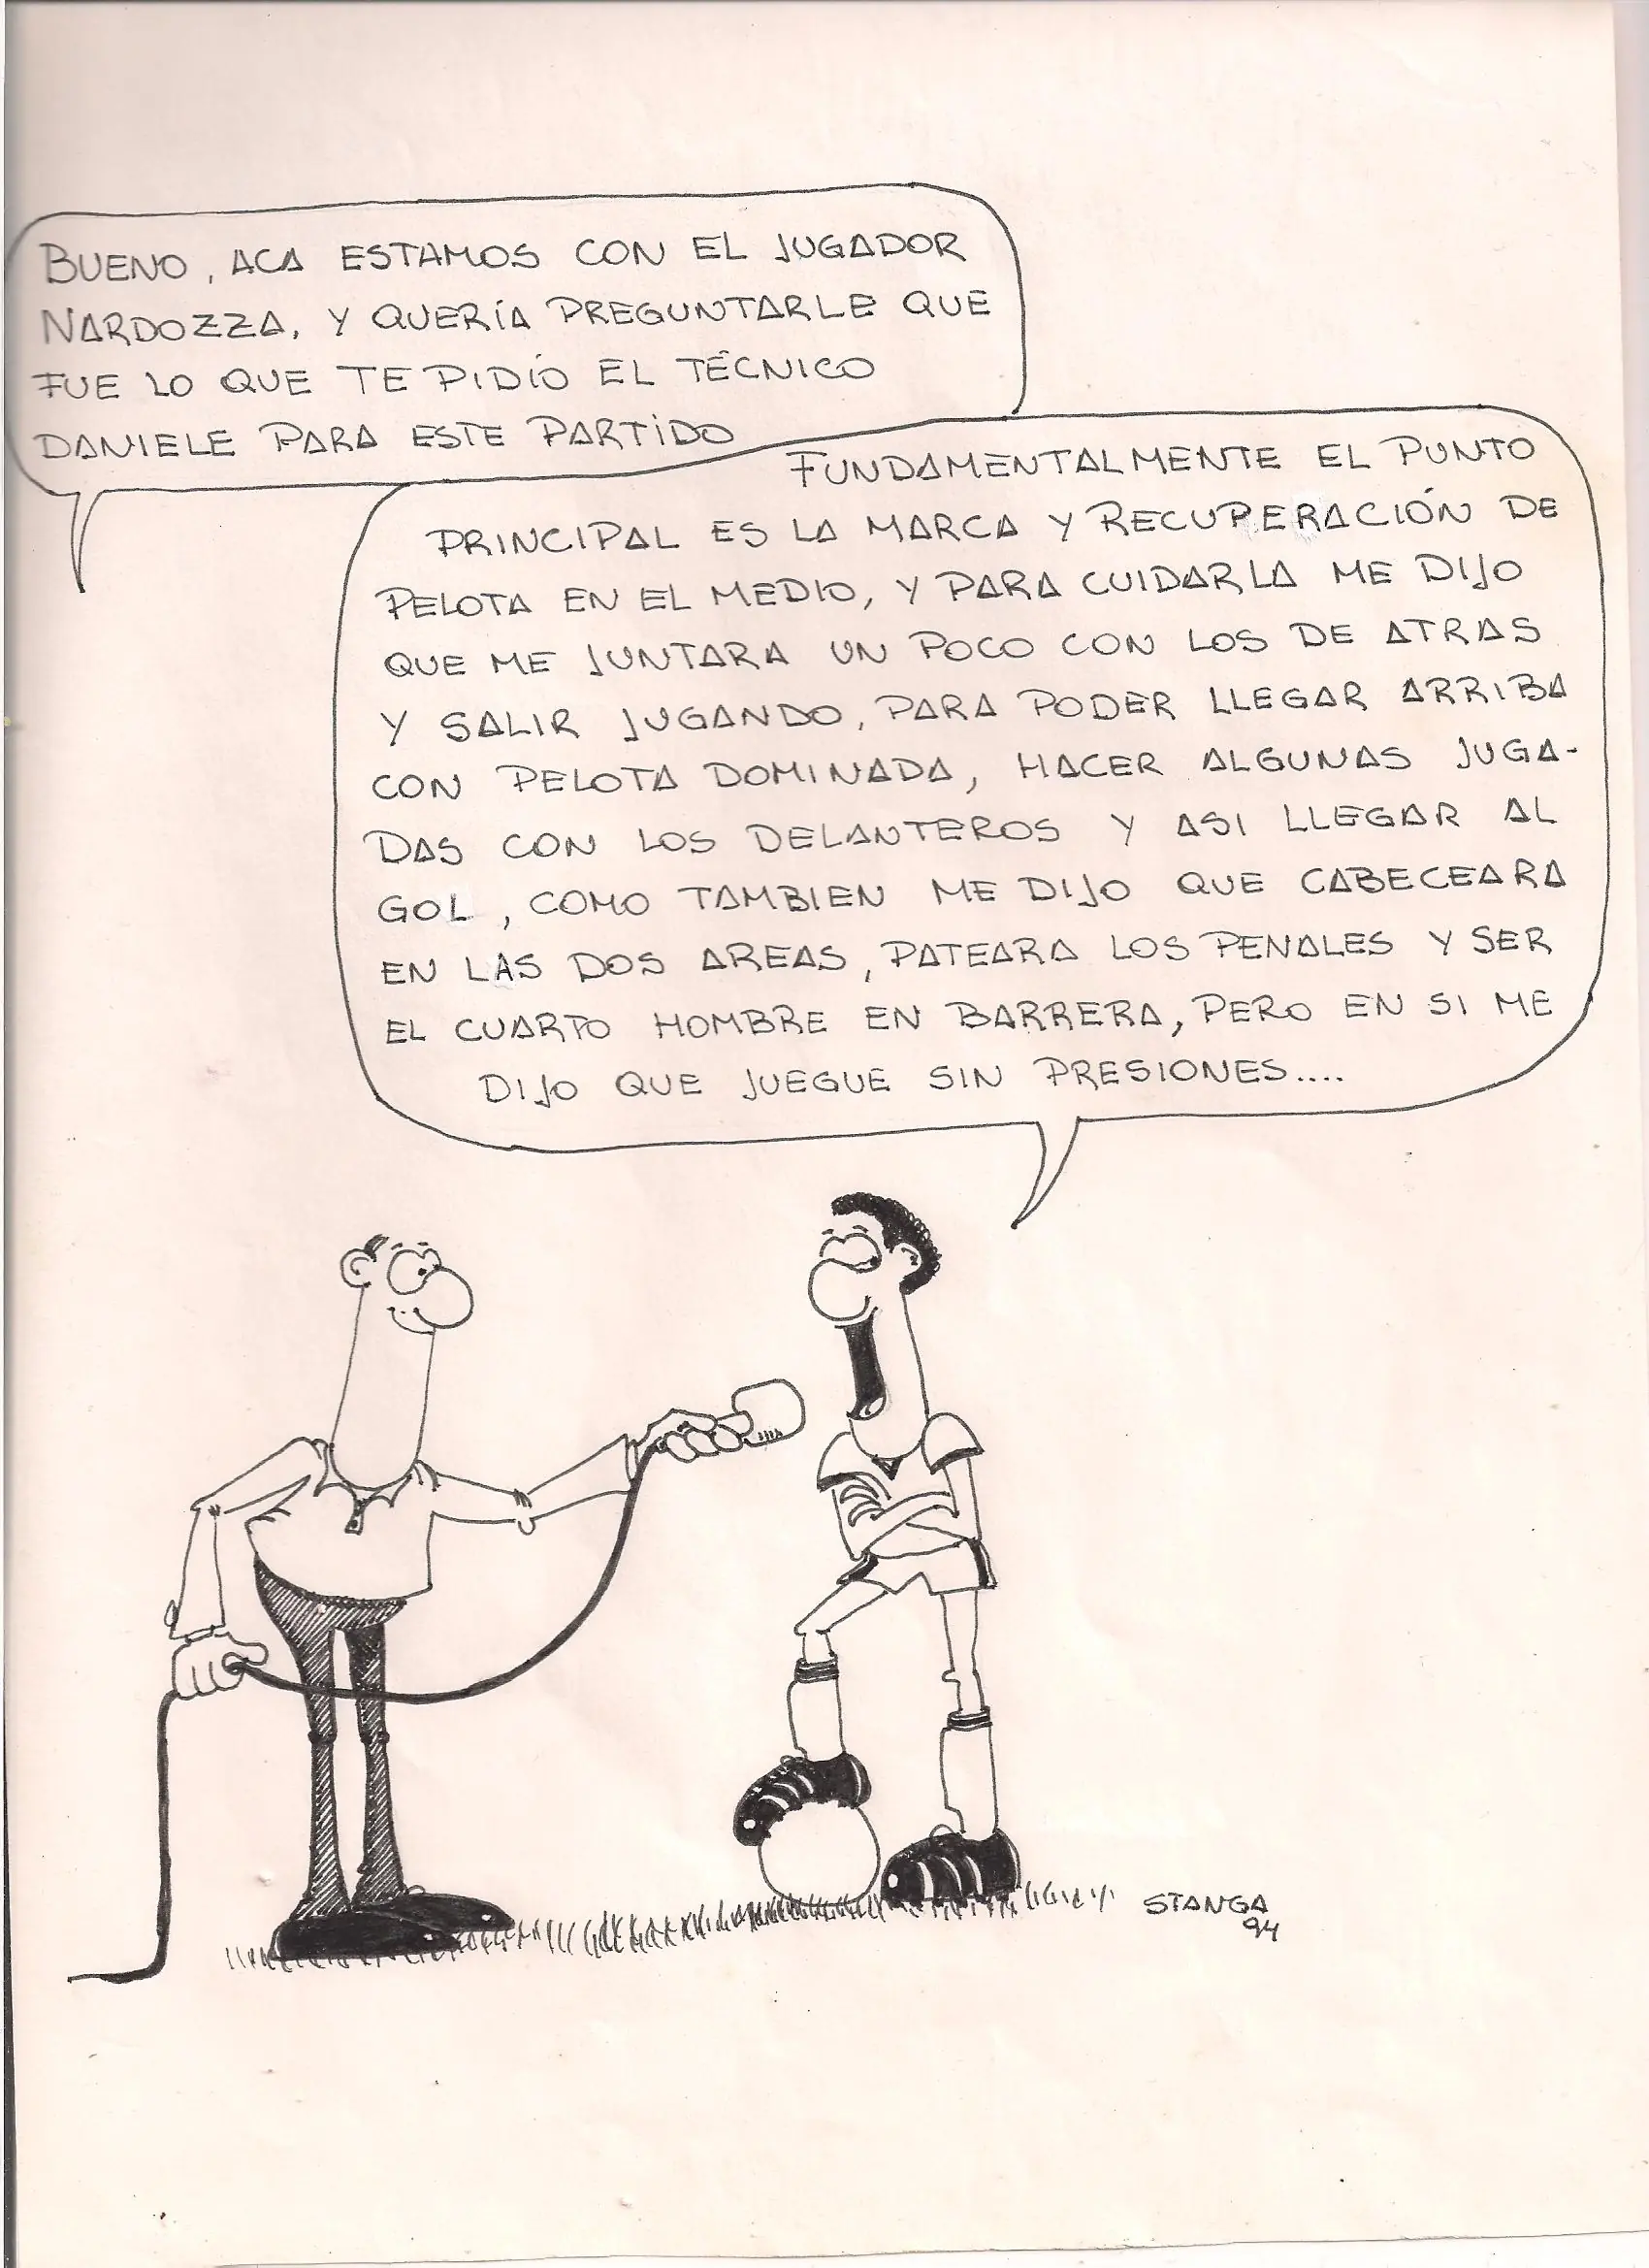 BUENO, ACA ESTAMOS CON EL JUGADOR
NARDOZZA, Y QUERÍA PREGUNTARLE QUE
FUE LO QUE TE PIDIÓ EL TÉCNICO
DANIELE PARA ESTE PARTIDO
FUNDAMENTALMENTE EL PUNTO
PRINCIPAL ES LA MARCA Y RECUPERACIÓN DE
PELOTA EN EL MEDIO, Y PARA CUIDARLA ME DIJO
QUE ME JUNTARA UN POCO CON LOS DE ATRAS
Y SALIR JUGANDO, PARA PODER LLEGAR ARRIBA
CON PELOTA DOMINADA, HACER ALGUNAS JUGA-
DAS CON LOS DELANTEROS Y ASI LLEGAR AL
GOL, COMO TAMBIEN ME DIJO QUE CABECEARA
EN LAS DOS AREAS, PATEARA LOS PENALES Y SER
EL CUARTO HOMBRE EN BARRERA, PERO EN SI ME
DIJO QUE JUEGUE SIN PRESIONES....
STANGA
94